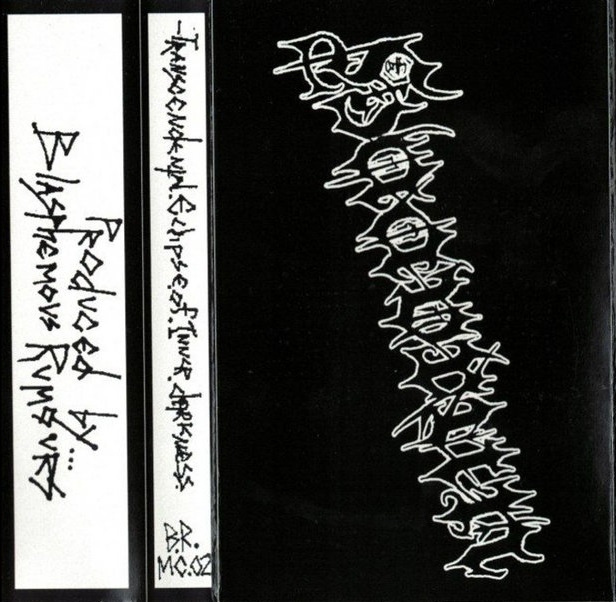 Produced by...
Blasphemous Rumours
-Transcendental.Eclipse.of.Inner.darkness.
B.R.
M.C.02